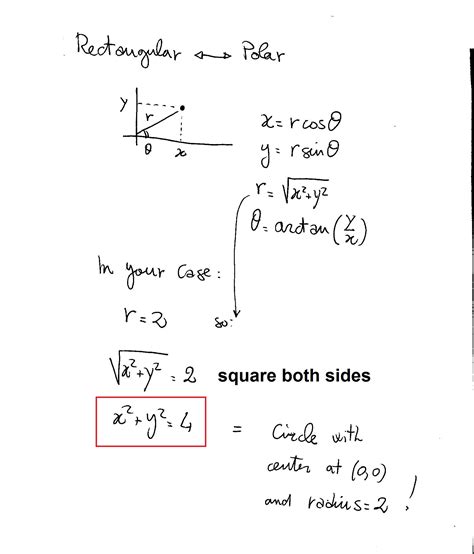 Rectangular ↔ Polar
y
r
θ
x
x = r cosθ
y = r sinθ
r = √(x²+y²)
θ = arctan(y/x)
In your case:
r = 2
so:
√(x²+y²) = 2 square both sides
x² + y² = 4 = Circle with
center at (0,0)
and radius = 2 !